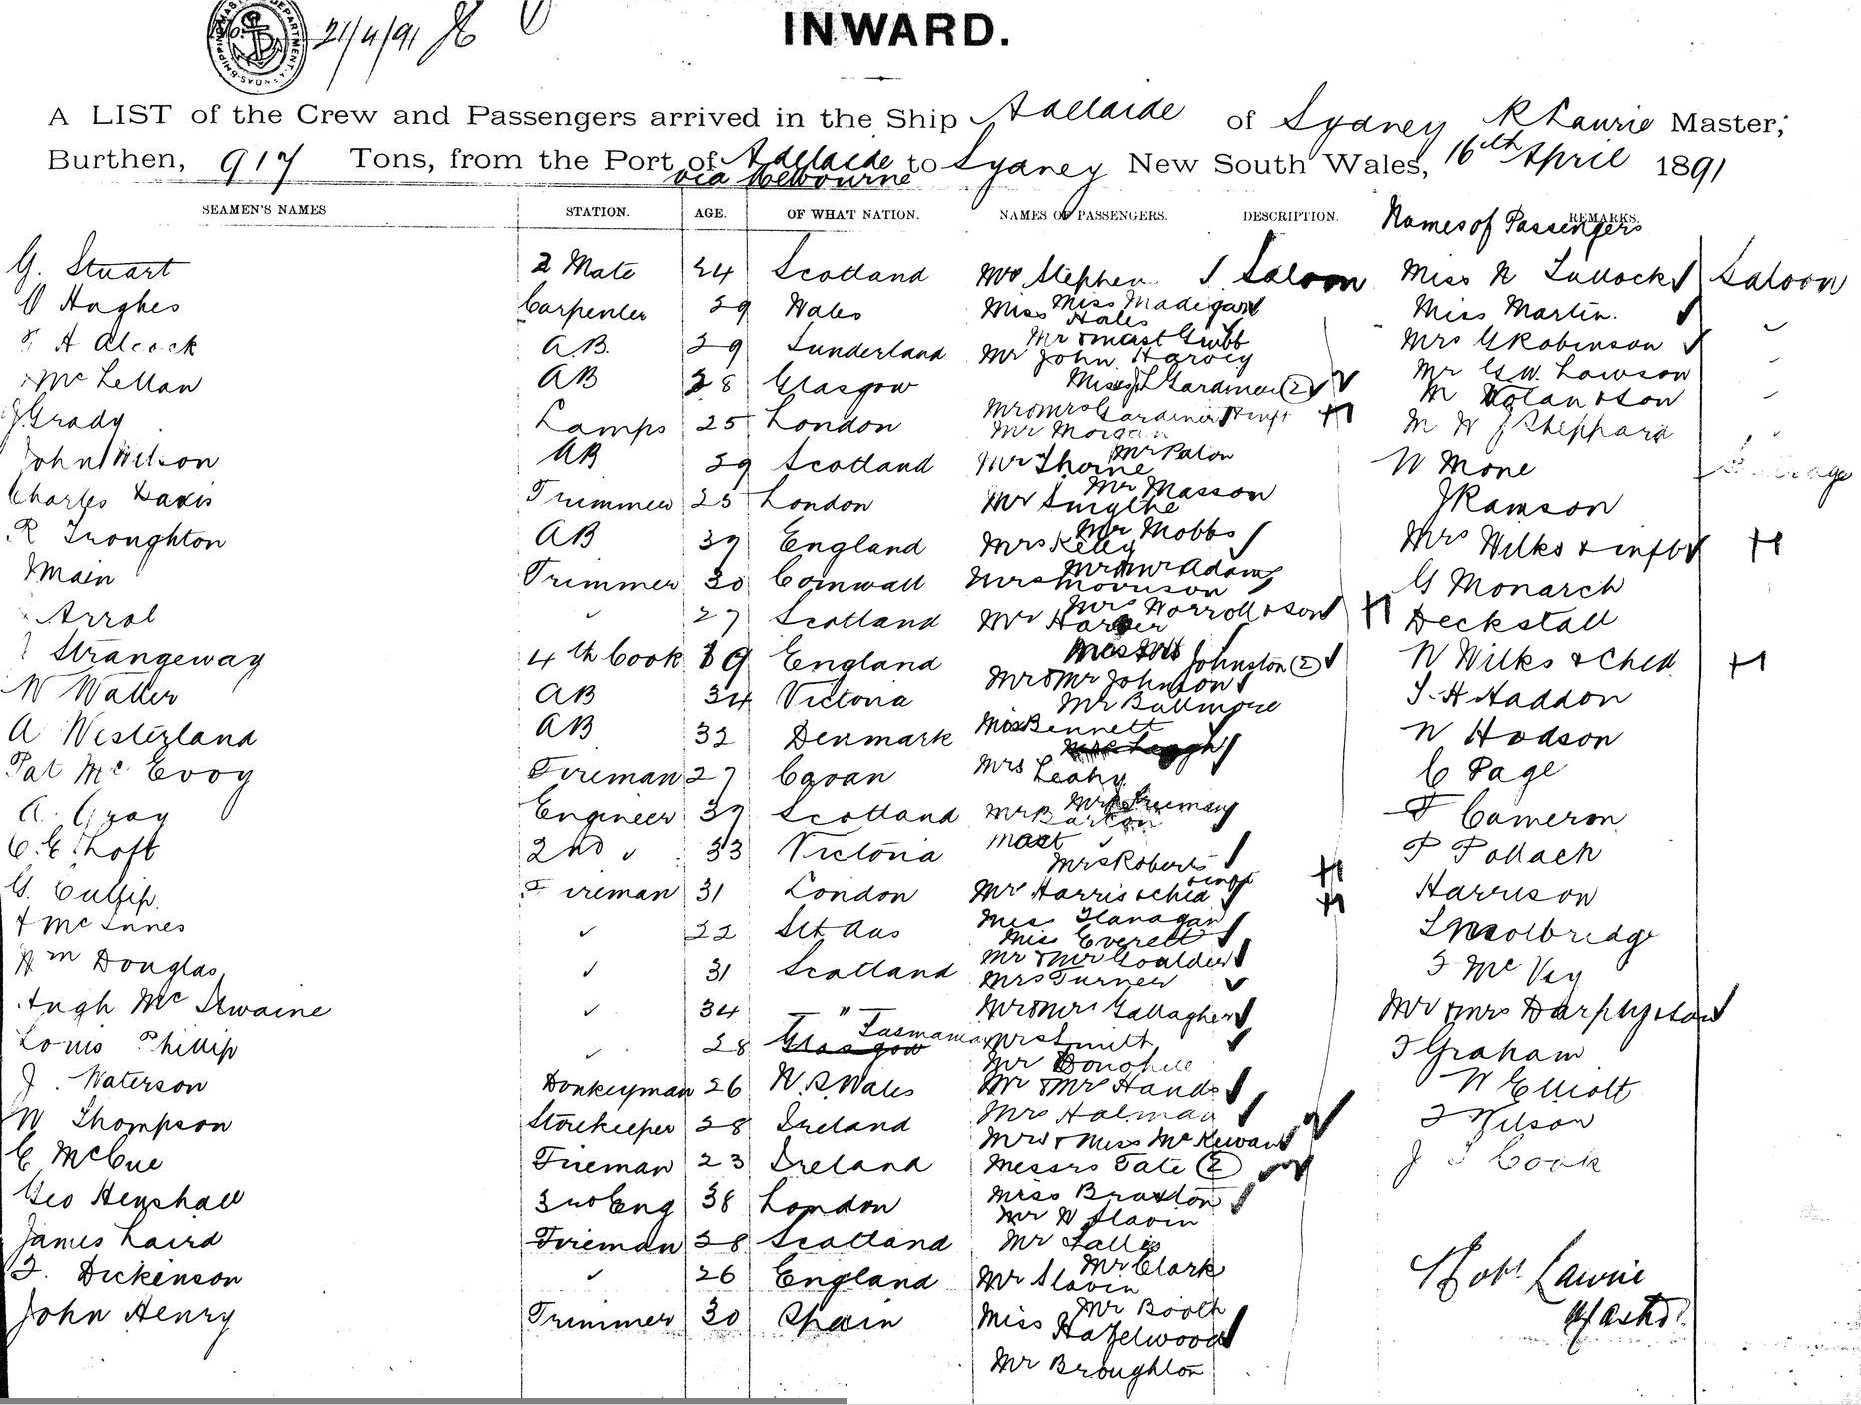 21/4/91
INWARD.
A LIST of the Crew and Passengers arrived in the Ship Adelaide of Sydney R Laurie Master,
Burthen, 917 Tons, from the Port of Adelaide to Sydney New South Wales, 16th April 1891
via Melbourne
SEAMEN'S NAMES STATION. AGE. OF WHAT NATION. NAMES OF PASSENGERS. DESCRIPTION. Names of Passengers REMARKS.
G. Stuart 2 Mate 24 Scotland Mr Stephen Saloon Miss N Tullock Saloon
O Hughes Carpenter 29 Wales Miss Hales Miss Madigan Miss Martin.
A Alcock A.B. 29 Sunderland Mr John Harvey Mrs G Robinson
McLellan AB 28 Glasgow Miss Gardiner (2) Mr G.W. Lawson
J. Grady Lamps 25 London Mr & Mrs Gardiner & inft M Nolan & son
Mr Morgan M W J Sheppard
John Wilson AB 29 Scotland Mr Thorne Mr Paton W Mone
Charles Davis Trimmer 25 London Mr Smythe Mr Masson J Ramson
R Troughton AB 39 England Mrs Kelly Mr Mobbs Mrs Wilks & inft
Main Trimmer 30 Cornwall Mrs Morrison Mr & Mr Adams G Monarch
Arrol " 27 Scotland Mr Harper Mrs Worroll & son Deckstall
Strangeway 4th Cook 19 England Johnston (2) W Wilks & Chld
W Waller AB 34 Victoria Mr & Mr Johnson Mr Bullmore T. H Haddon
A Westerland AB 32 Denmark Miss Bennett W Hodson
Pat McEvoy Fireman 27 Cavan Mrs Leahy C Page
A. Gray Engineer 39 Scotland Mr Barton Mrs Freeman F Cameron
C. E Thoft 2nd " 33 Victoria Mast " Mrs Roberts & inft P Pollack
G. Cullip. Fireman 31 London Mr Harris & chld Harrison
McInnes " 22 Sth Aus Miss Flanagan Miss Everett
Wm Douglas " 31 Scotland Mr & Mr Goulder Mrs Turner F McVey
Hugh McIlwaine " 34 " Mr & Mrs Gallagher Mr & Mrs
Louis Phillip " 28 Glasgow Tasmania Mrs Smith Mr Donohue F Graham
J. Waterson Donkeyman 26 N.S. Wales Mr & Mrs Hands W Elliott
W Thompson Storekeeper 28 Ireland Mrs Holman F Wilson
Mrs & Miss McKewan
C McCue Fireman 23 Ireland Messrs Tate (2) J Cook
Geo Henshall 3rd Eng 38 London Miss Braxton Mr W Slavin
James Laird Fireman 28 Scotland Mr Tallis
F. Dickenson " 26 England Mr Slavin Mr Clark Robt Laurie
John Henry Trimmer 30 Spain Miss Hazelwood Mr Booth Master
Mr Broughton